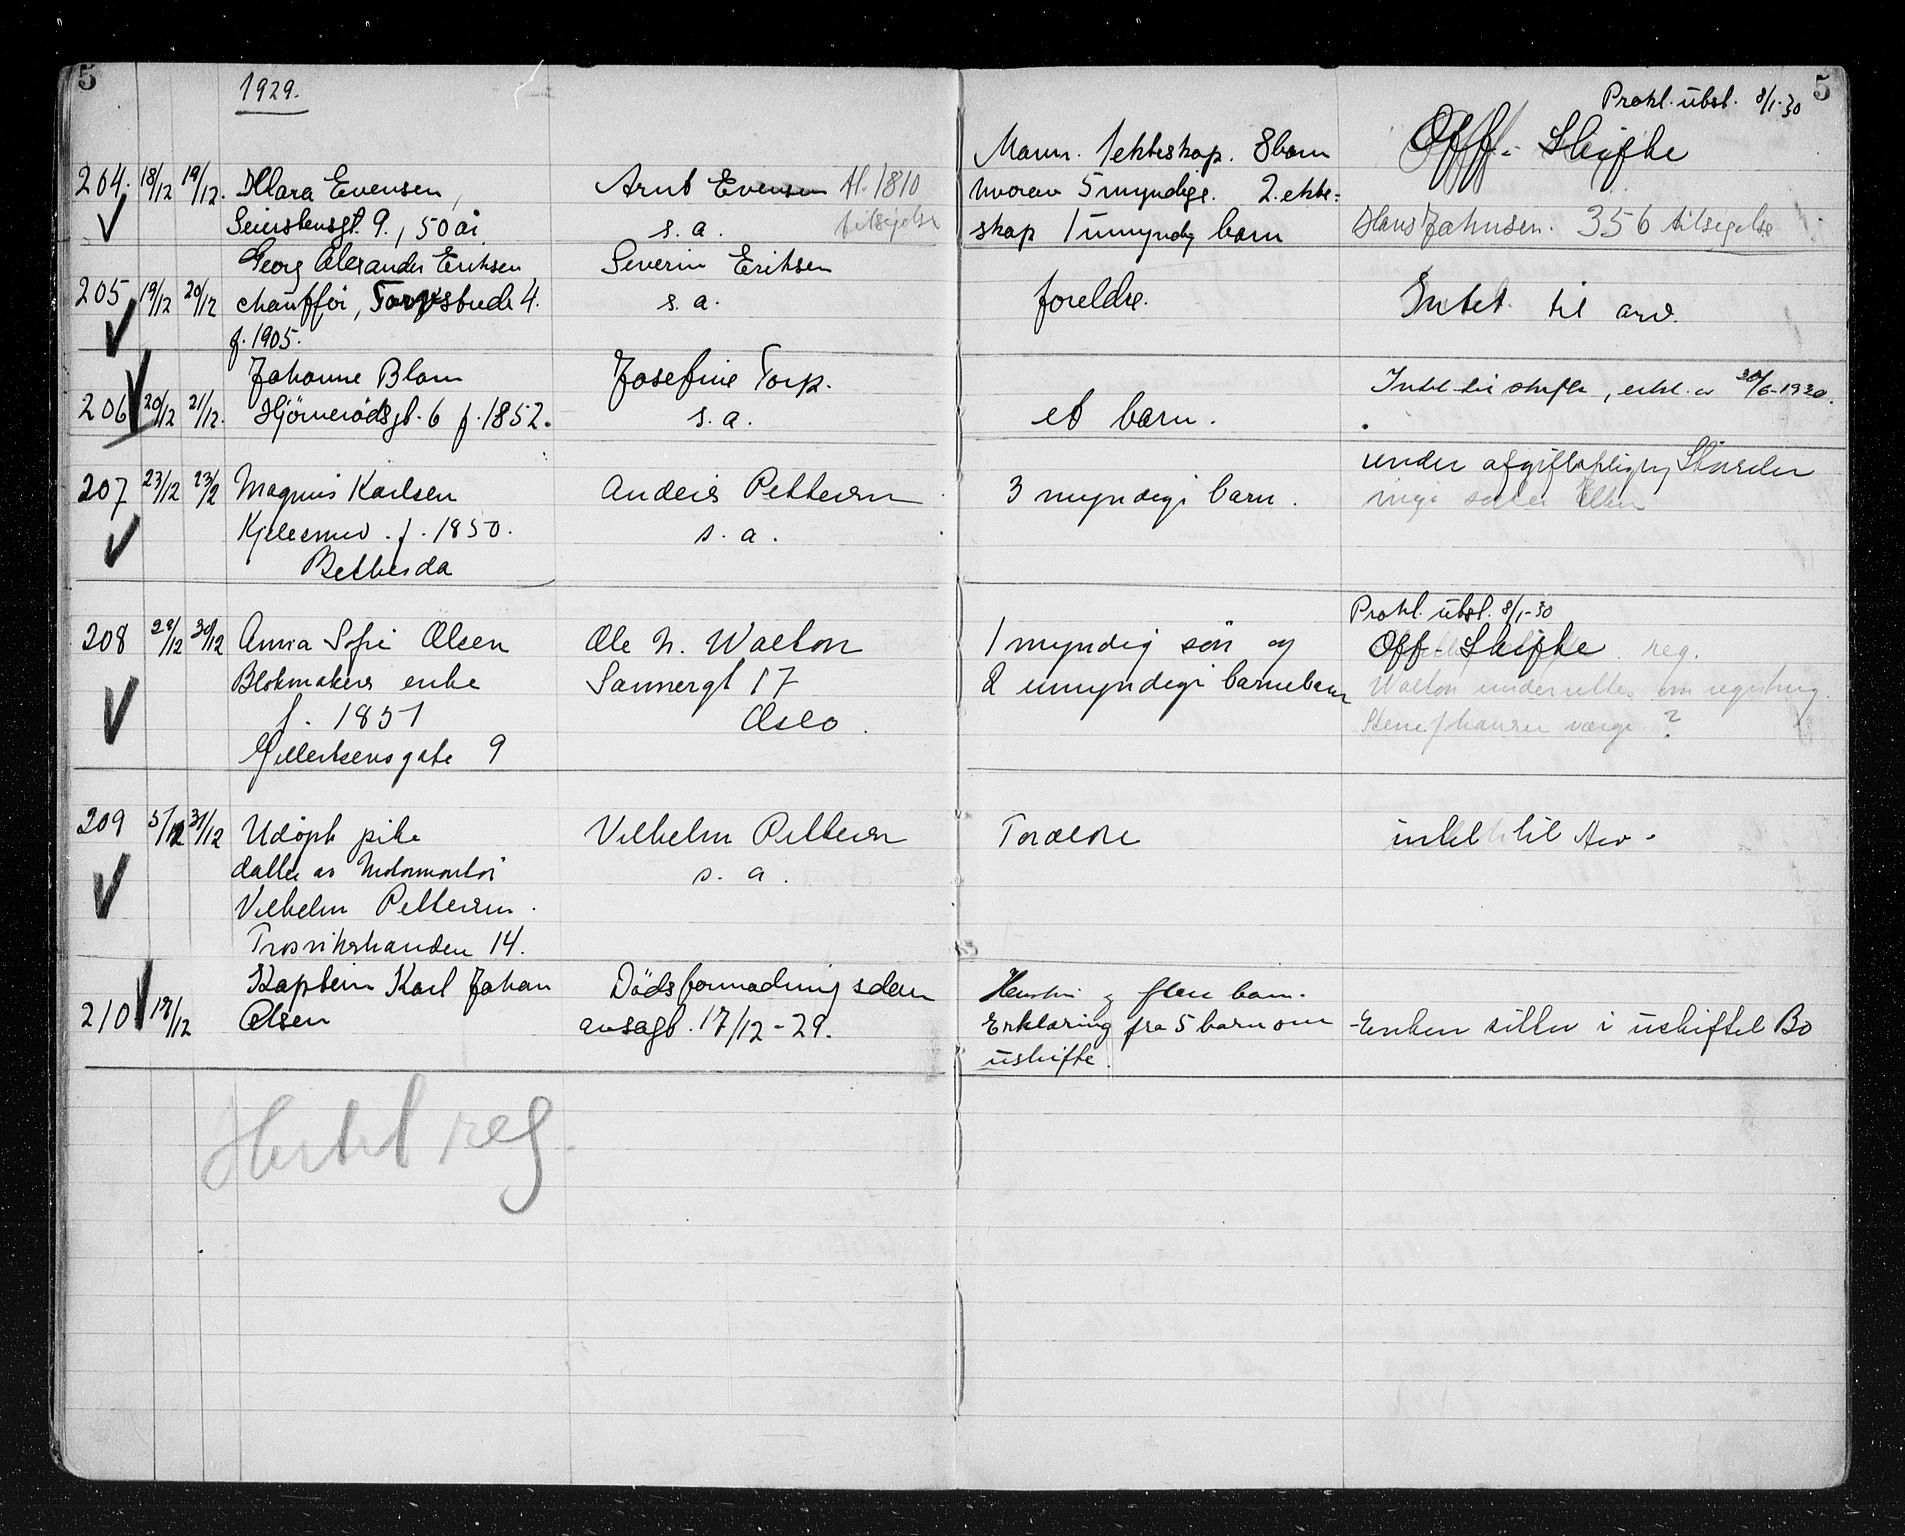 5
1929.
5
Prokl. utst. 8/1-30
204. 18/12 19/12. Klara Evensen,
Seierstensgt. 9., 50 år
Arnt Evensen tl. 1810
s. a. tilsigelse
Mann. 1 ekteskap. 8 barn
hvorav 5 myndige. 2. ekte-
skap 1 umyndig barn
Off. Skifte
Hans Johnsen. 356 tilsigelse
205 19/12 20/12 Georg Alexander Eriksen
chauffør, Torvsbude 4.
f. 1905.
Severin Eriksen
s. a.
foreldre.
Intet til arv.
206 20/12 21/12. Johanne Blom
Hjørnerødsgt. 6 f. 1852.
Josefine Torp.
s. a.
et barn.
Intet til skifte, erkl. av 30/6-1930.
207 23/12 23/12 Magnus Karlsen
Kjelesmed. f. 1850.
Bethesda
Anders Pettersen
s. a.
3 myndige barn.
under
208 28/12 30/12 Anna Sofie Olsen
Blokmakers enke
f. 1851
Gillertsensgate 9
Ole N. Walton
Sannergt 17
Oslo.
1 myndig søn og
2 umyndige barnebarn
Prokl. utst. 8/1-30
Off. Skifte reg.
Walton underrettes om registrering.
værge ?
209 31/12 31/12 Udøpt pike
datter av Motormontør
Vilhelm Pettersen.
Trosvikstranden 14.
Vilhelm Pettersen
s. a.
Forældre
intet til Arv.
210 18/12 Kaptein Karl Johan
Olsen
Dødsformodning sden
avsagt. 17/12-29.
Hustru og flere barn.
Erklæring fra 5 barn om
uskifte.
Enken sitter i uskiftet Bo
reg.